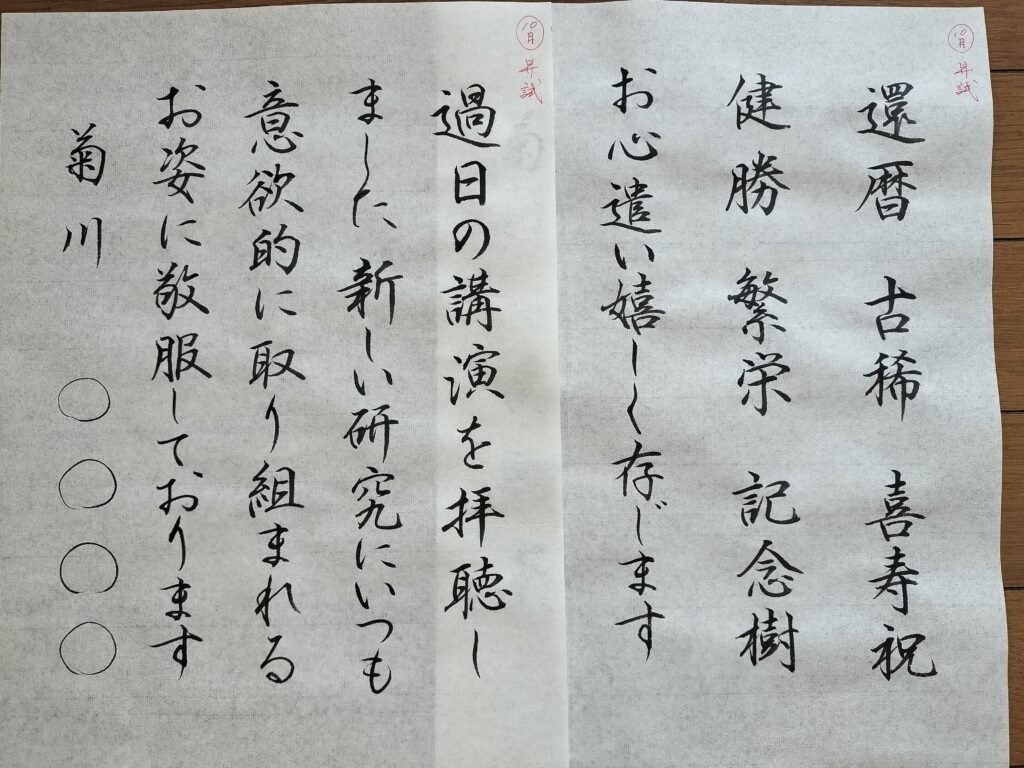 10月 昇試
還暦 古稀 喜寿祝
健勝 繁栄 記念樹
お心遣い嬉しく存じます
10月 昇試
過日の講演を拝聴し
ました 新しい研究にいつも
意欲的に取り組まれる
お姿に敬服しております
菊川 〇〇〇〇